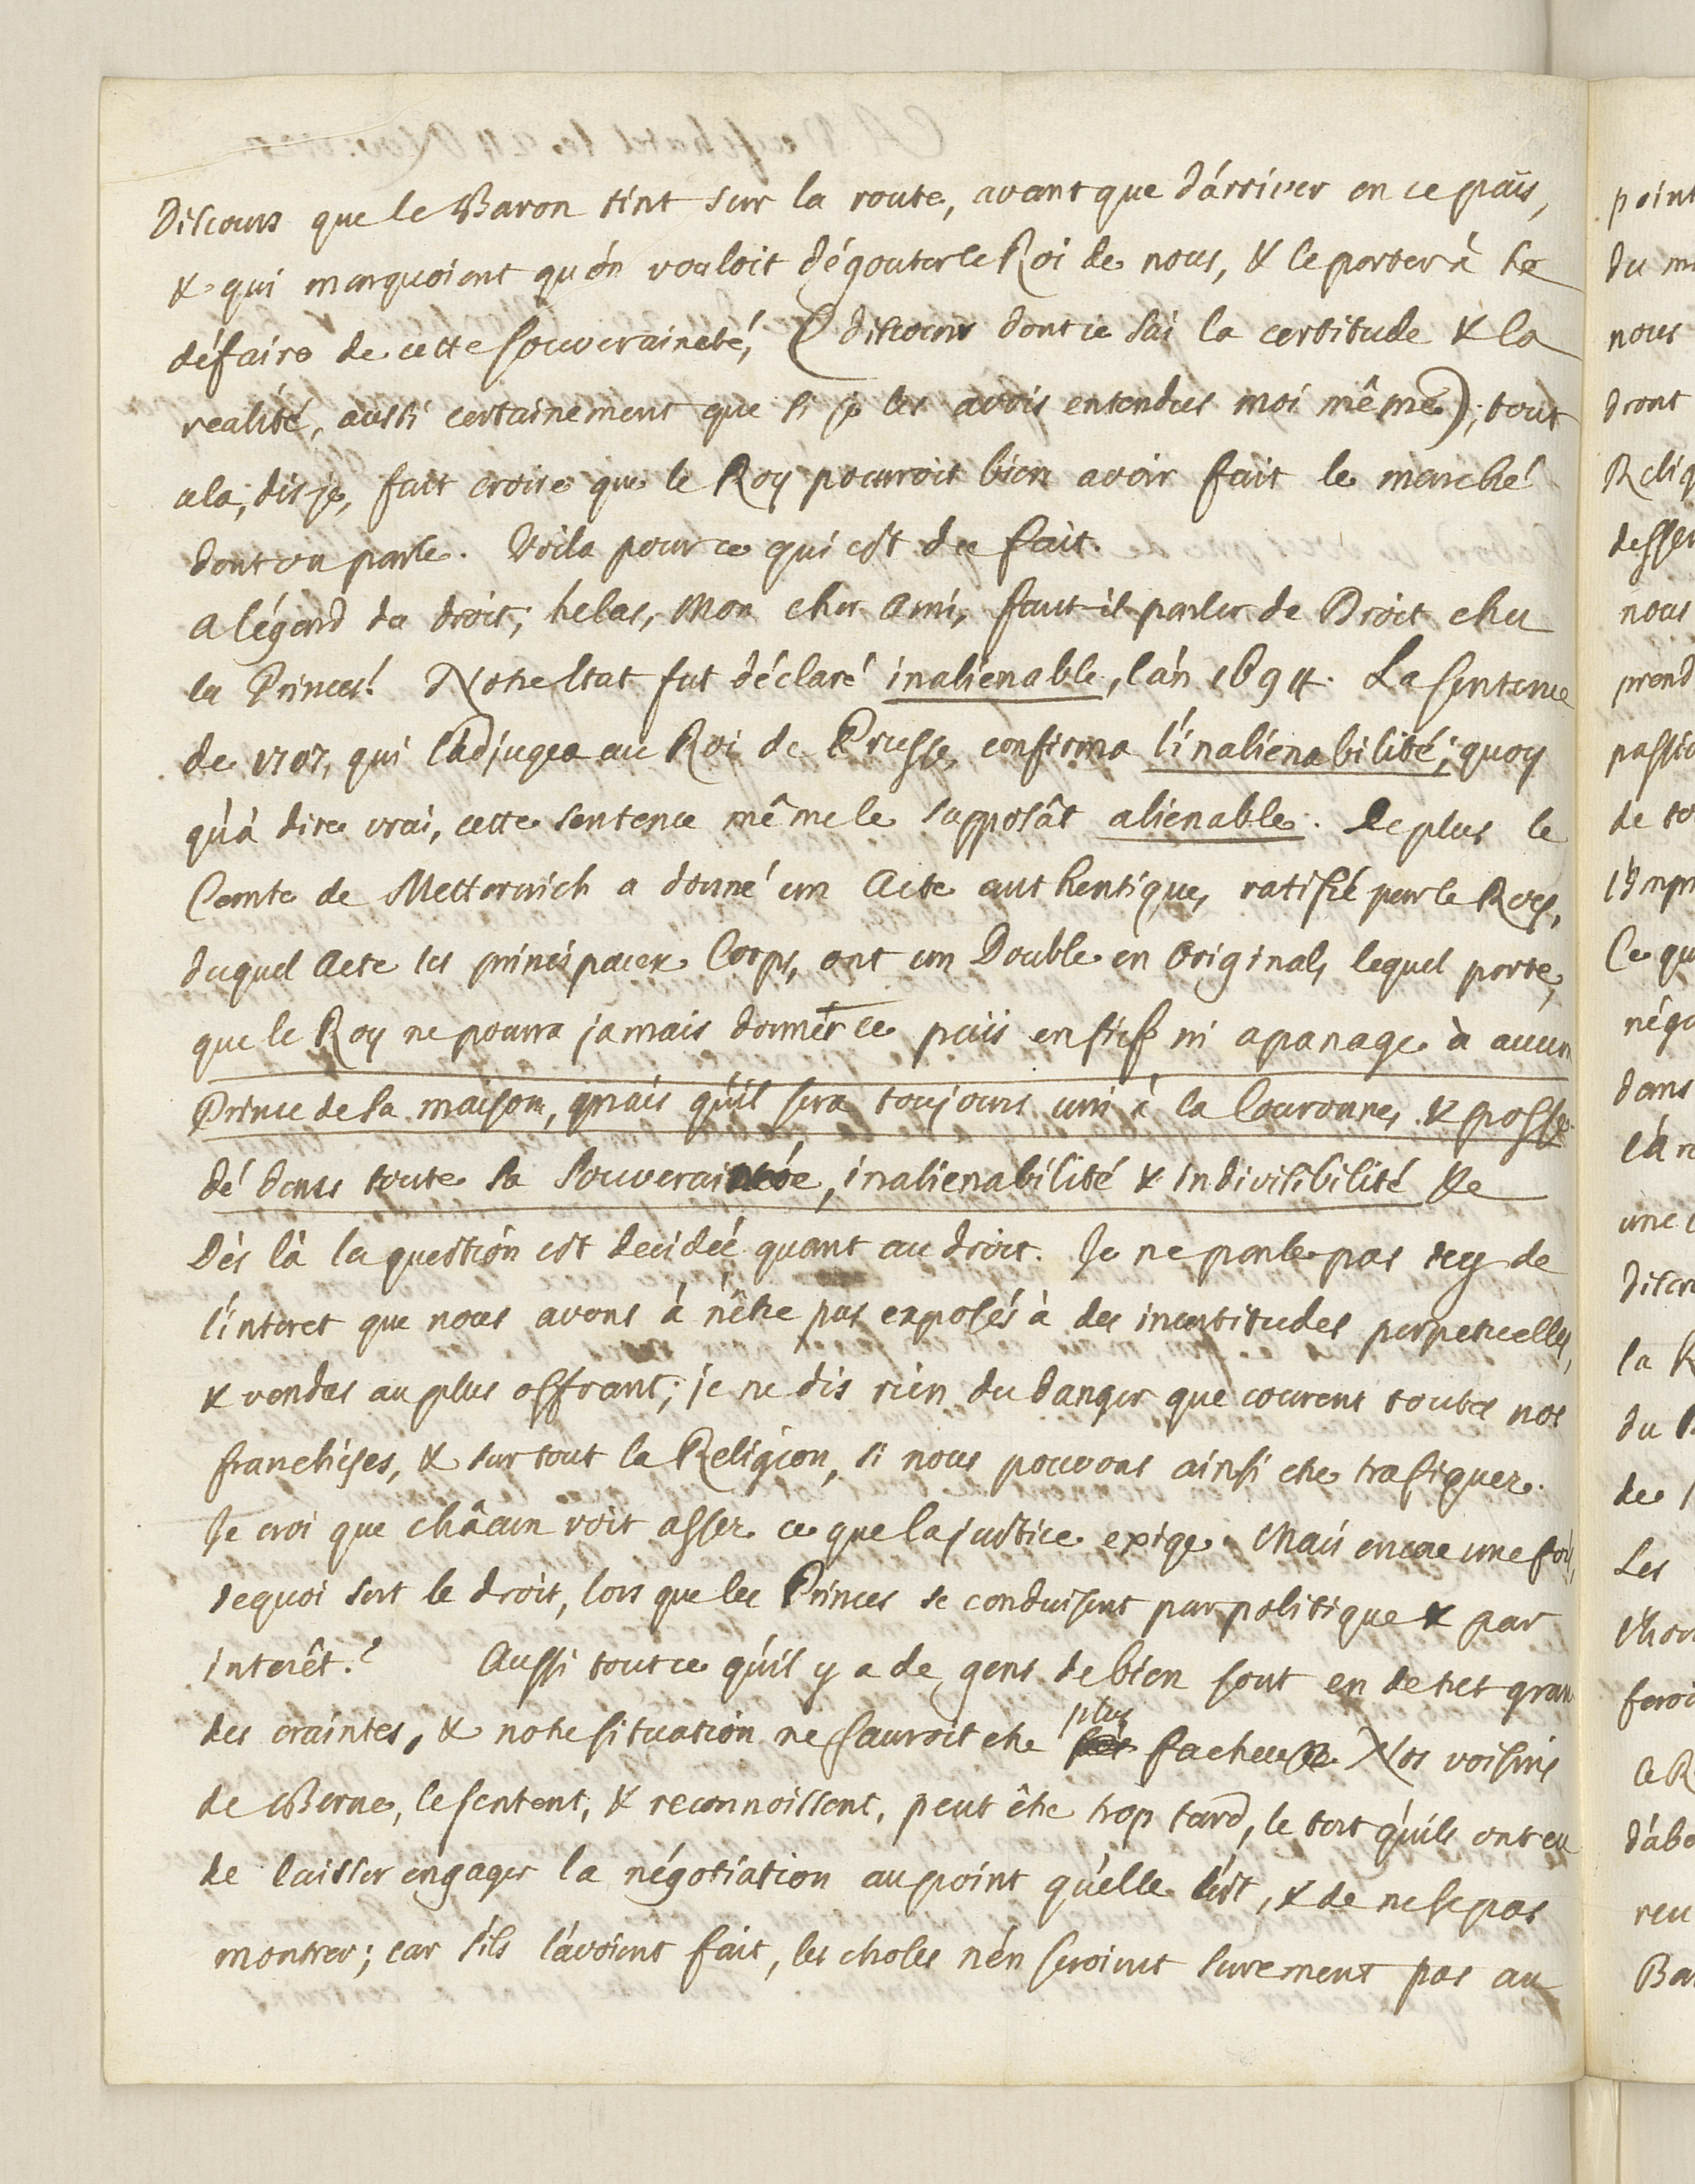 Discours que le Baron tint sur la route, avant que d'arriver en ce païs,
& qui marquoient qu'on vouloit dégouter le Roi de nous, & le porter à se
défaire de cette souveraineté, (discours dont je sai la certitude & la
realité, aussi certainement que si je les avois entendues moi même); tout
cela, dis je, fait croire que le Roy pourroit bien avoir fait le marché
dont on parle. Voila pour ce qui est du fait.
A légard du droit; helas, Mon cher Ami, faut-il parler de Droit chez
les Princes! Notre Etat fut déclaré inalienable, l'an 1694. La sentence
de 1707, qui l'adjugea au Roi de Prusse, confirma l'inalienabilité; quoy
qu'à dire vrai, cette sentence même le supposât alienable. De plus le
Comte de Metternich a donné un Acte authentique, ratifié par le Roy,
duquel Acte les principaux Corps, ont un Double en Original, lequel porte,
que le Roy ne pourra jamais donner ce païs en fief ni apanage à aucun
Prince de sa maison, mais qu'il sera toujours uni à la Couronne, & posse-
dé dans toute sa Souveraineté, inalienabilité & indivisibilité &c
Dès là la question est decidée quant au droit. Je ne parle pas icy de
l'interet que nous avons à n'être pas exposés à des incertitudes perpetuelles,
& vendus au plus offrant; je ne dis rien du danger que courent toutes nos
franchises, & sur tout la Religion, si nous pouvons ainsi etre trafiquez.
Je croi que châcun voit assez ce que la justice exige. Mais encore une fois,
dequoi sert le droit, lors que les Princes se conduisent par politique & par
interêt? Aussi tout ce qu'il y a de gens de bien sont en de tres gran-
des craintes, & notre situation ne sauroit etre plus facheuse. Nos voisins
de Berne, le sentent, & reconnoissent, peut être trop tard, le tort qu'ils ont eu
de laisser engager la négotiation au point qu'elle l'est, & de ne se pas
montrer; car s'ils l'avoient fait, les choses n'en seroient surement pas au
point
nous
dront
nous
prend
de to
Ce qu
dans
du
de
Les